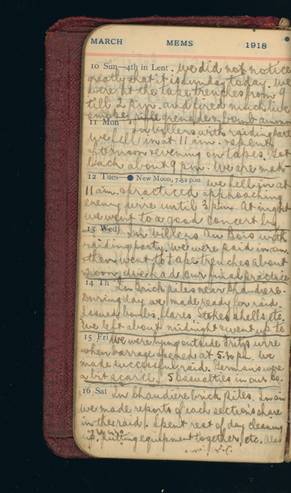 MARCH MEMS 1918
10 Sun—4th in Lent. We did not notice
greatly that it is Sunday today. We
were at the tape trenches from 9
till 2 p.m. and lived much like
smoke, rifle grenades, bombs
11 Mon with raiding party
We fell in at 11 a.m. & spent
afternoon & evening on tapes. Got
back about 9 p.m. We are met
12 Tues—● New Moon, 7.52 p.m. We fell in at
11 a.m. & practiced approaching
enemy wire until 3 p.m. At night
we went to a good concert by
13 Wed In Villers Au Bois with
raiding party. We were paid in a.m.
then went to tape trenches about
& had our final practice
14 Th In brick piles near
During day we made ready for raid.
Issued bombs, flares, Stokes shells etc.
We left about midnight & went up to
15 Fri We were lying outside Fritz's wire
when barrage opened at 5.30 a.m. We
made successful raid. Germans were
a bit scarce. 5 casualties in our Co.
16 Sat In brick piles. In a.m.
we made reports of each section's share
in the raid. Spent rest of day cleaning
up, putting equipment together, etc. Was